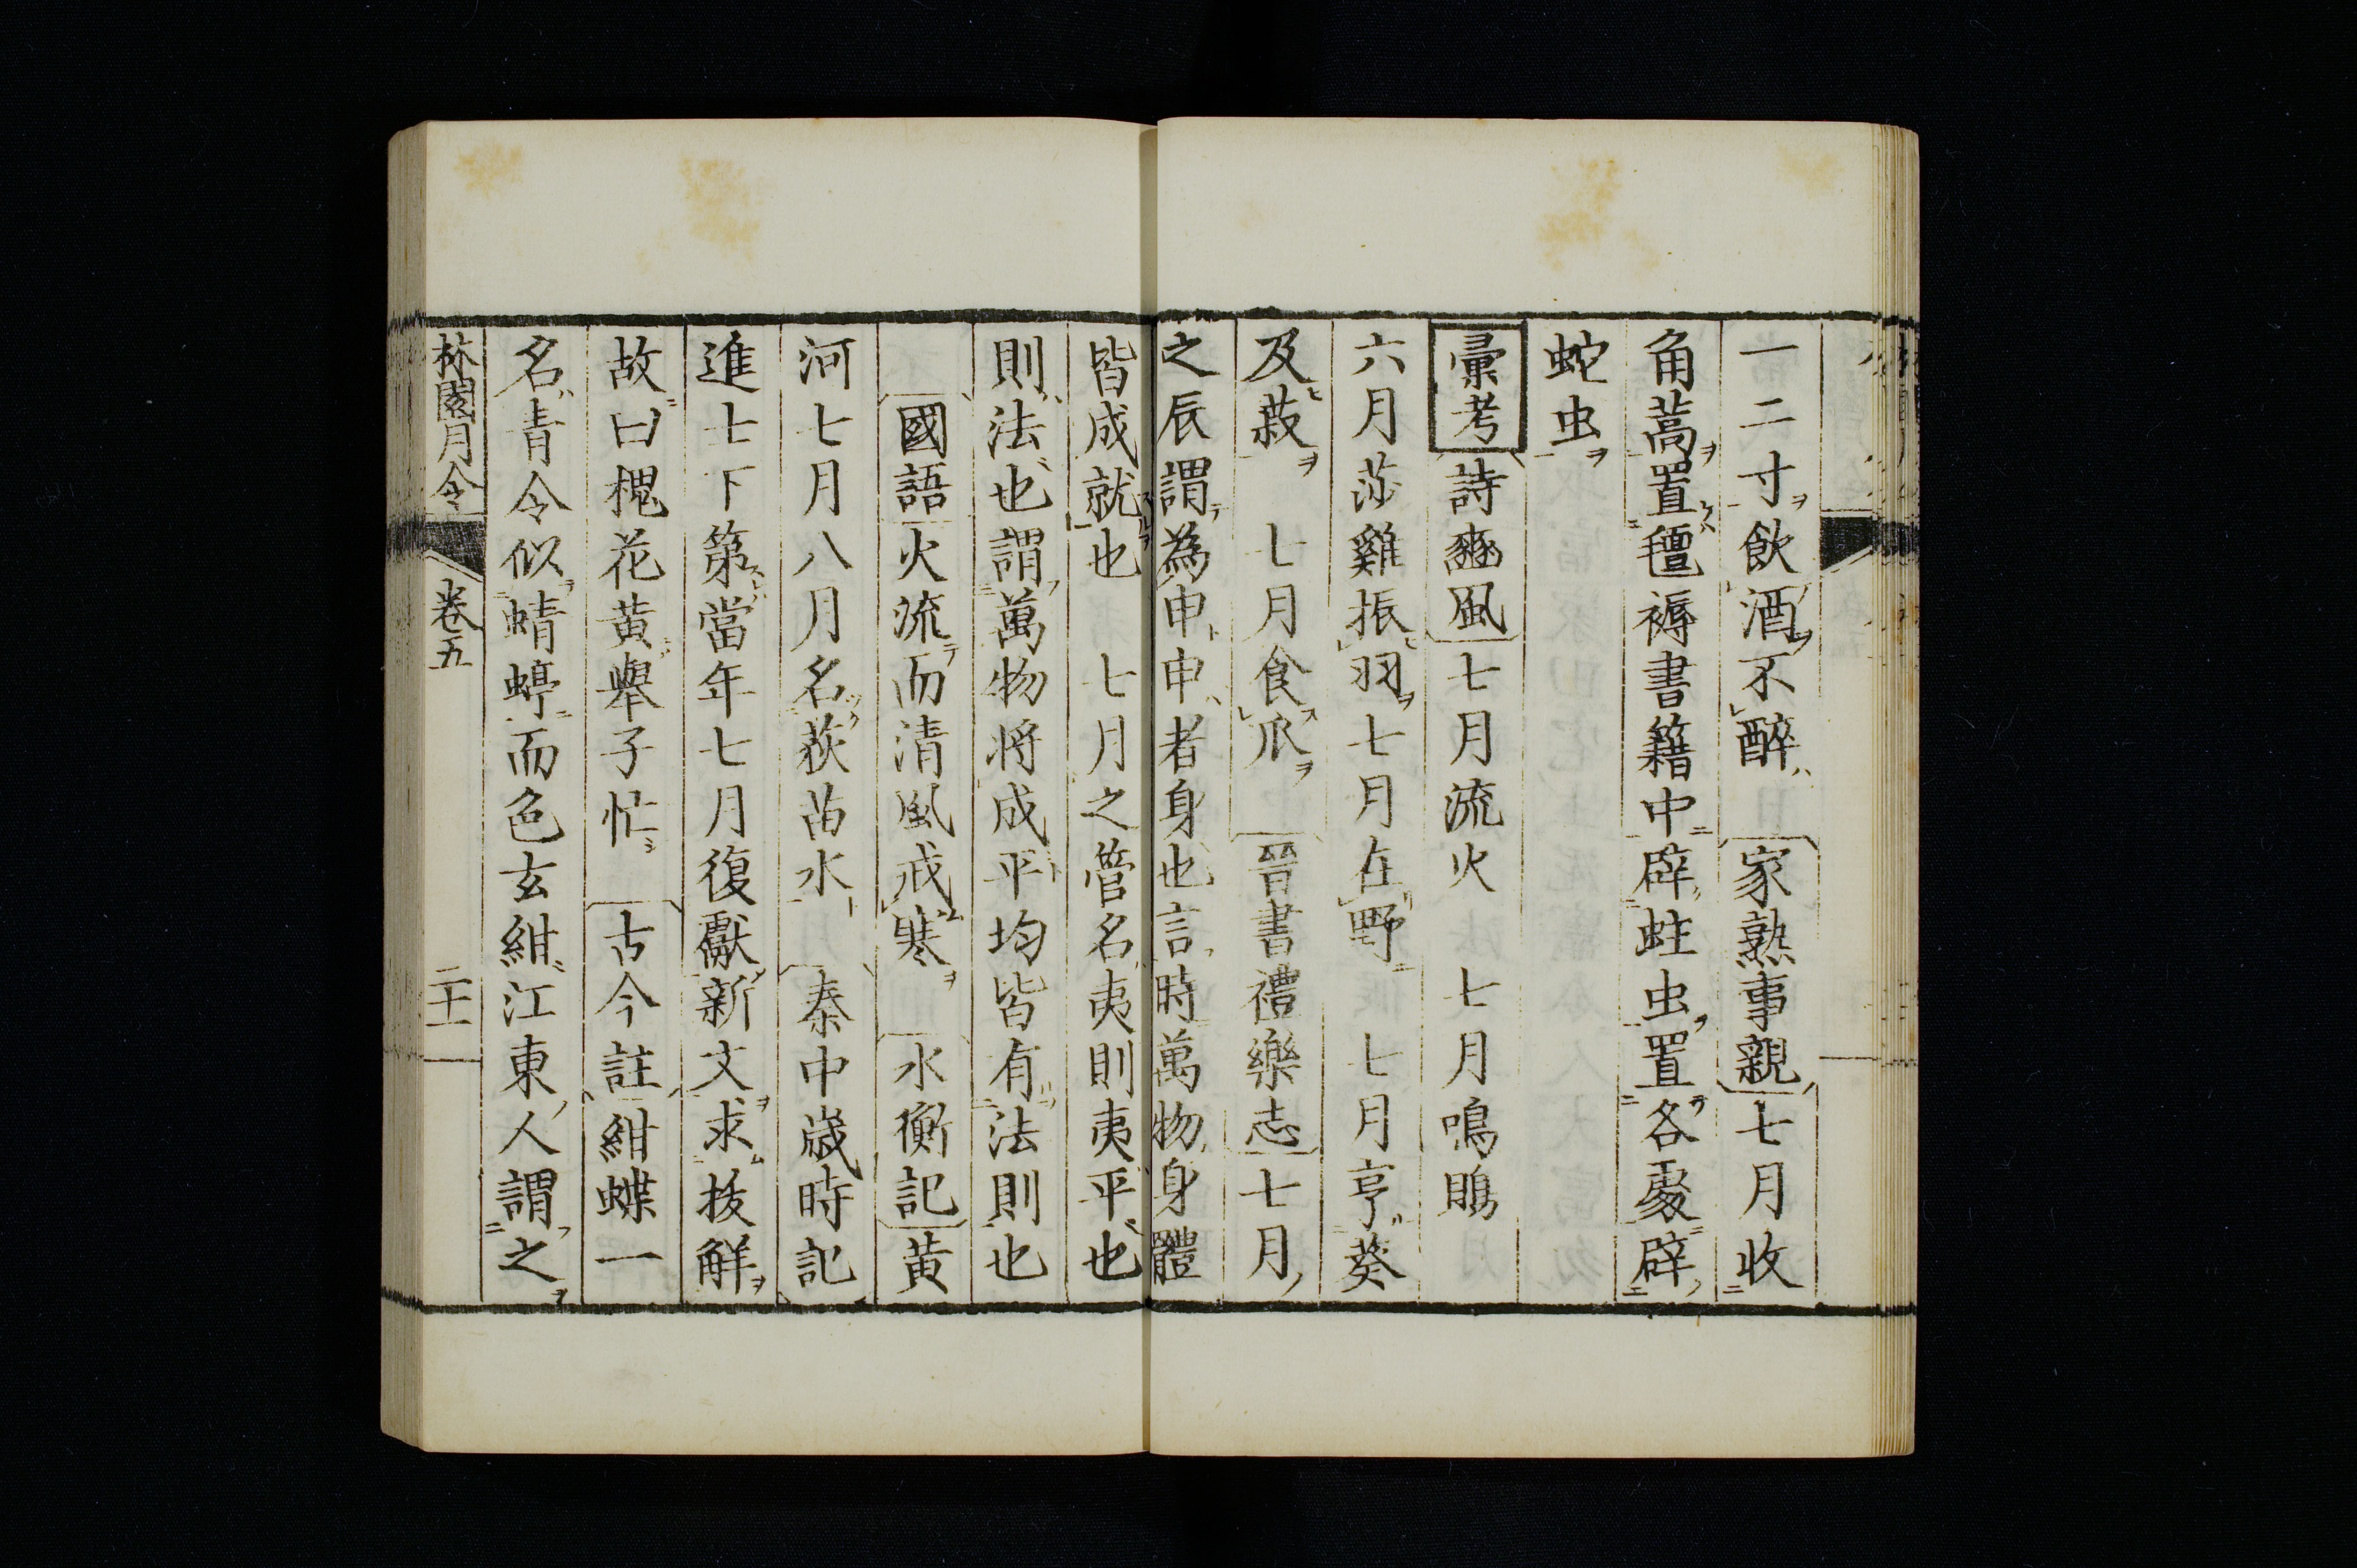 一二寸飲酒不醉　家熟事親七月收
角蒿置氊褥書籍中辟蛀虫置各處辟
蛇虫
彙考　詩豳風七月流火　七月鳴鵙
六月莎雞振羽七月在野　七月亨葵
及菽　七月食瓜　晉書禮樂志七月
之辰謂為申申者身也言時萬物身體
皆成就也　七月之管名夷則夷平也
則法也謂萬物将成平均皆有法則也
國語火流而清風戒寒　水衡記黃
河七月八月名荻苗水　秦中歲時記
進士下第當年七月復獻新文求拔解
故曰槐花黃舉子忙　古今註紺蝶一
名青令似蜻蝏而色玄紺江東人謂之
林園月令　卷五　二十一